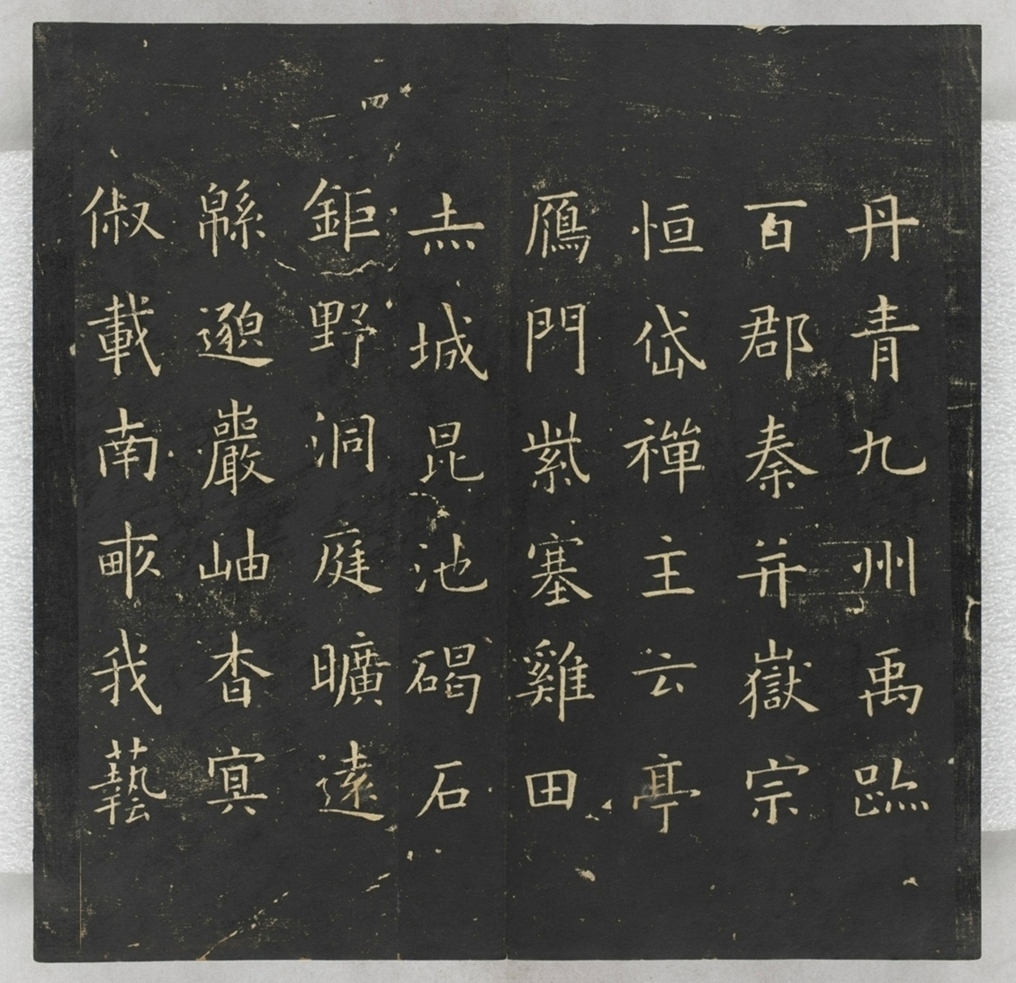 丹青九州禹跡
百郡秦并嶽宗
恒岱禪主云亭
鴈門紫塞雞田
赤城昆池碣石
鉅野洞庭曠遠
緜邈巖岫杳冥
俶載南畝我藝